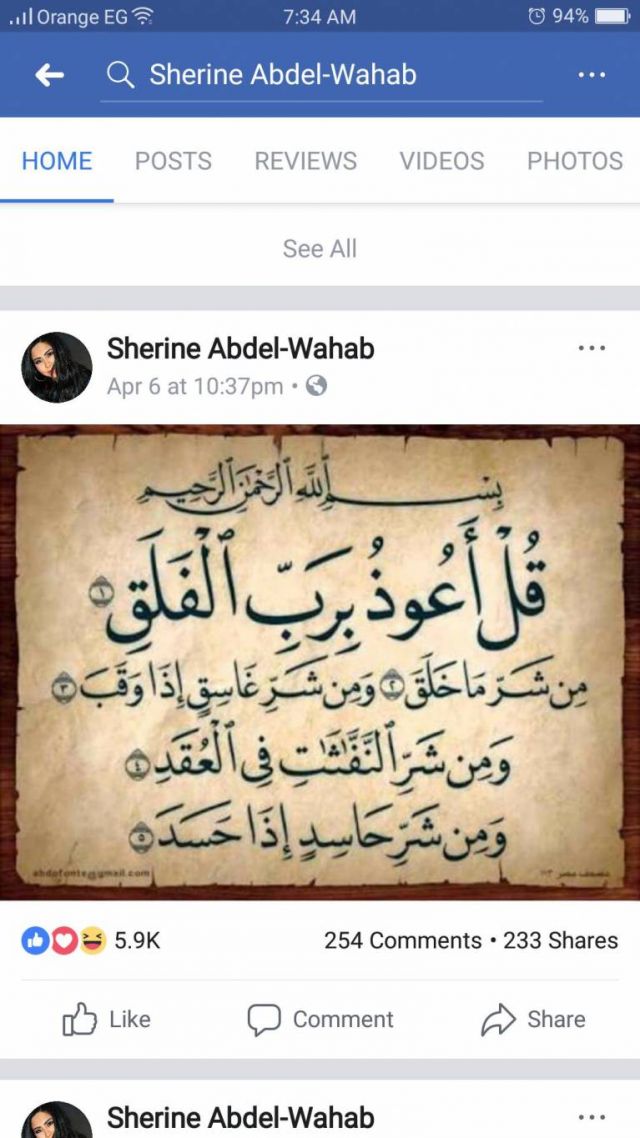 Orange EG 7:34 AM 94%
Sherine Abdel-Wahab
HOME POSTS REVIEWS VIDEOS PHOTOS
See All
Sherine Abdel-Wahab
Apr 6 at 10:37pm
بِسْمِ ٱللَّهِ ٱلرَّحْمَٰنِ ٱلرَّحِيمِ
قُلْ أَعُوذُ بِرَبِّ ٱلْفَلَقِ ١
مِن شَرِّ مَا خَلَقَ ٢ وَمِن شَرِّ غَاسِقٍ إِذَا وَقَبَ ٣
وَمِن شَرِّ ٱلنَّفَّٰثَٰتِ فِى ٱلْعُقَدِ ٤
وَمِن شَرِّ حَاسِدٍ إِذَا حَسَدَ ٥
5.9K 254 Comments • 233 Shares
Like Comment Share
Sherine Abdel-Wahab